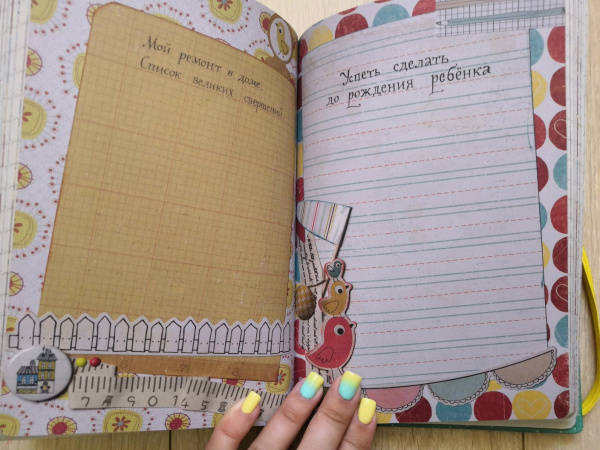 Мой ремонт в доме.
Список великих свершений
Успеть сделать
до рождения ребёнка